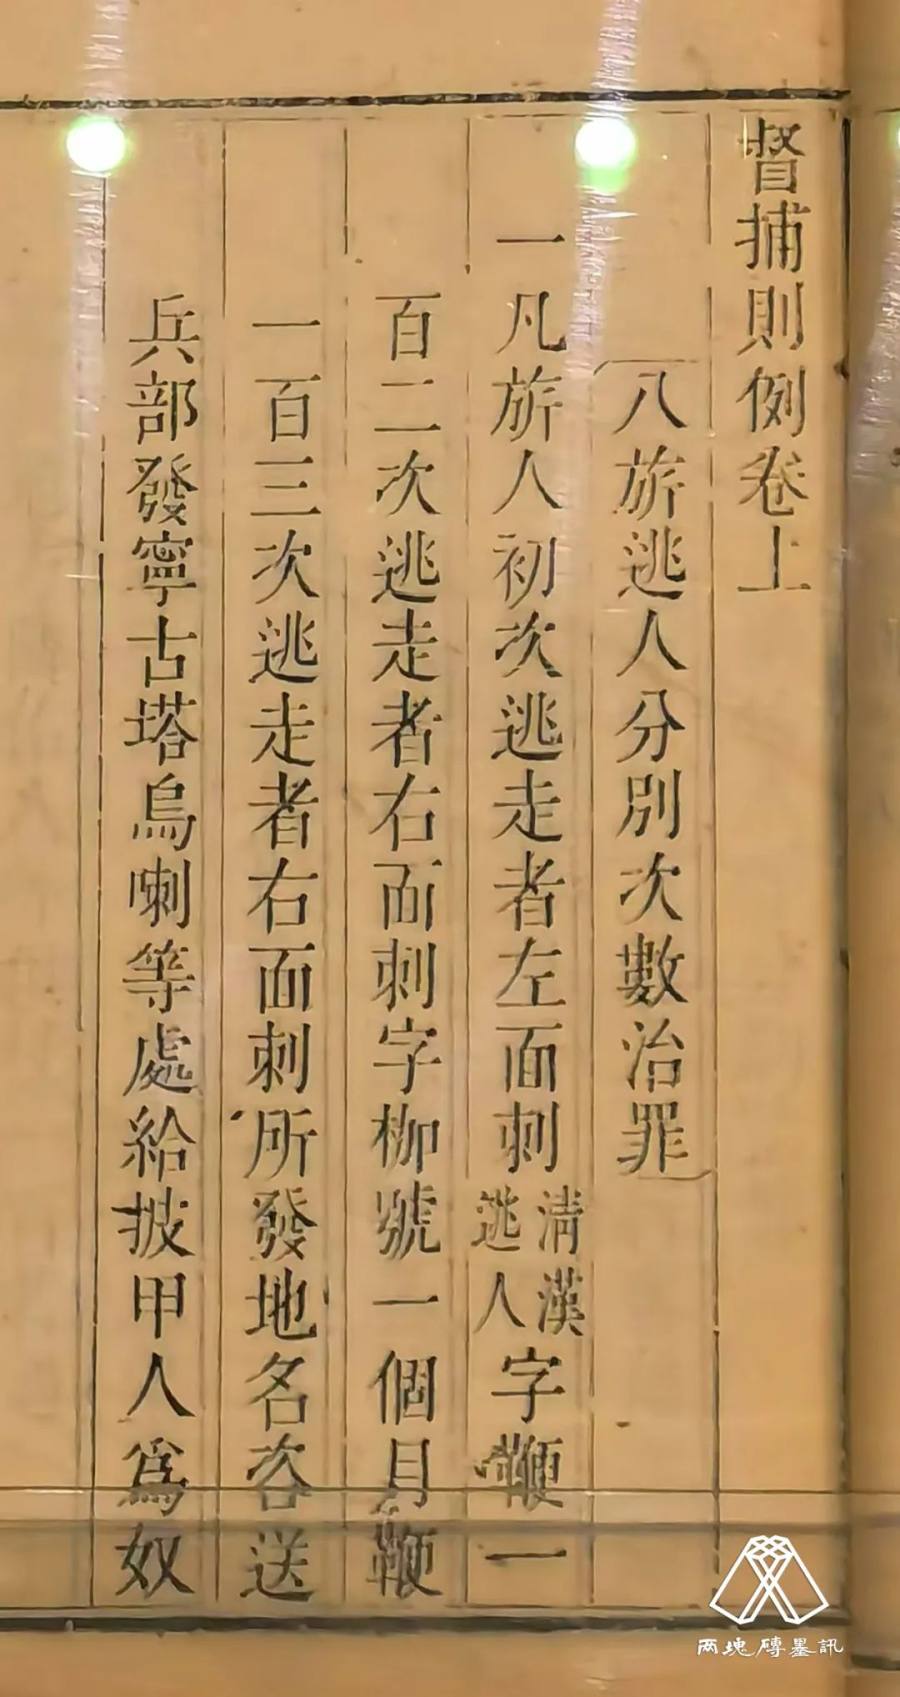 督捕則例卷上
八旂逃人分別次數治罪
一凡旂人初次逃走者左面刺清漢逃人字鞭一
百二次逃走者右面刺字枷號一個月鞭
一百三次逃走者右面刺所發地名咨送
兵部發寧古塔烏喇等處給披甲人爲奴
两塊磚墨訊